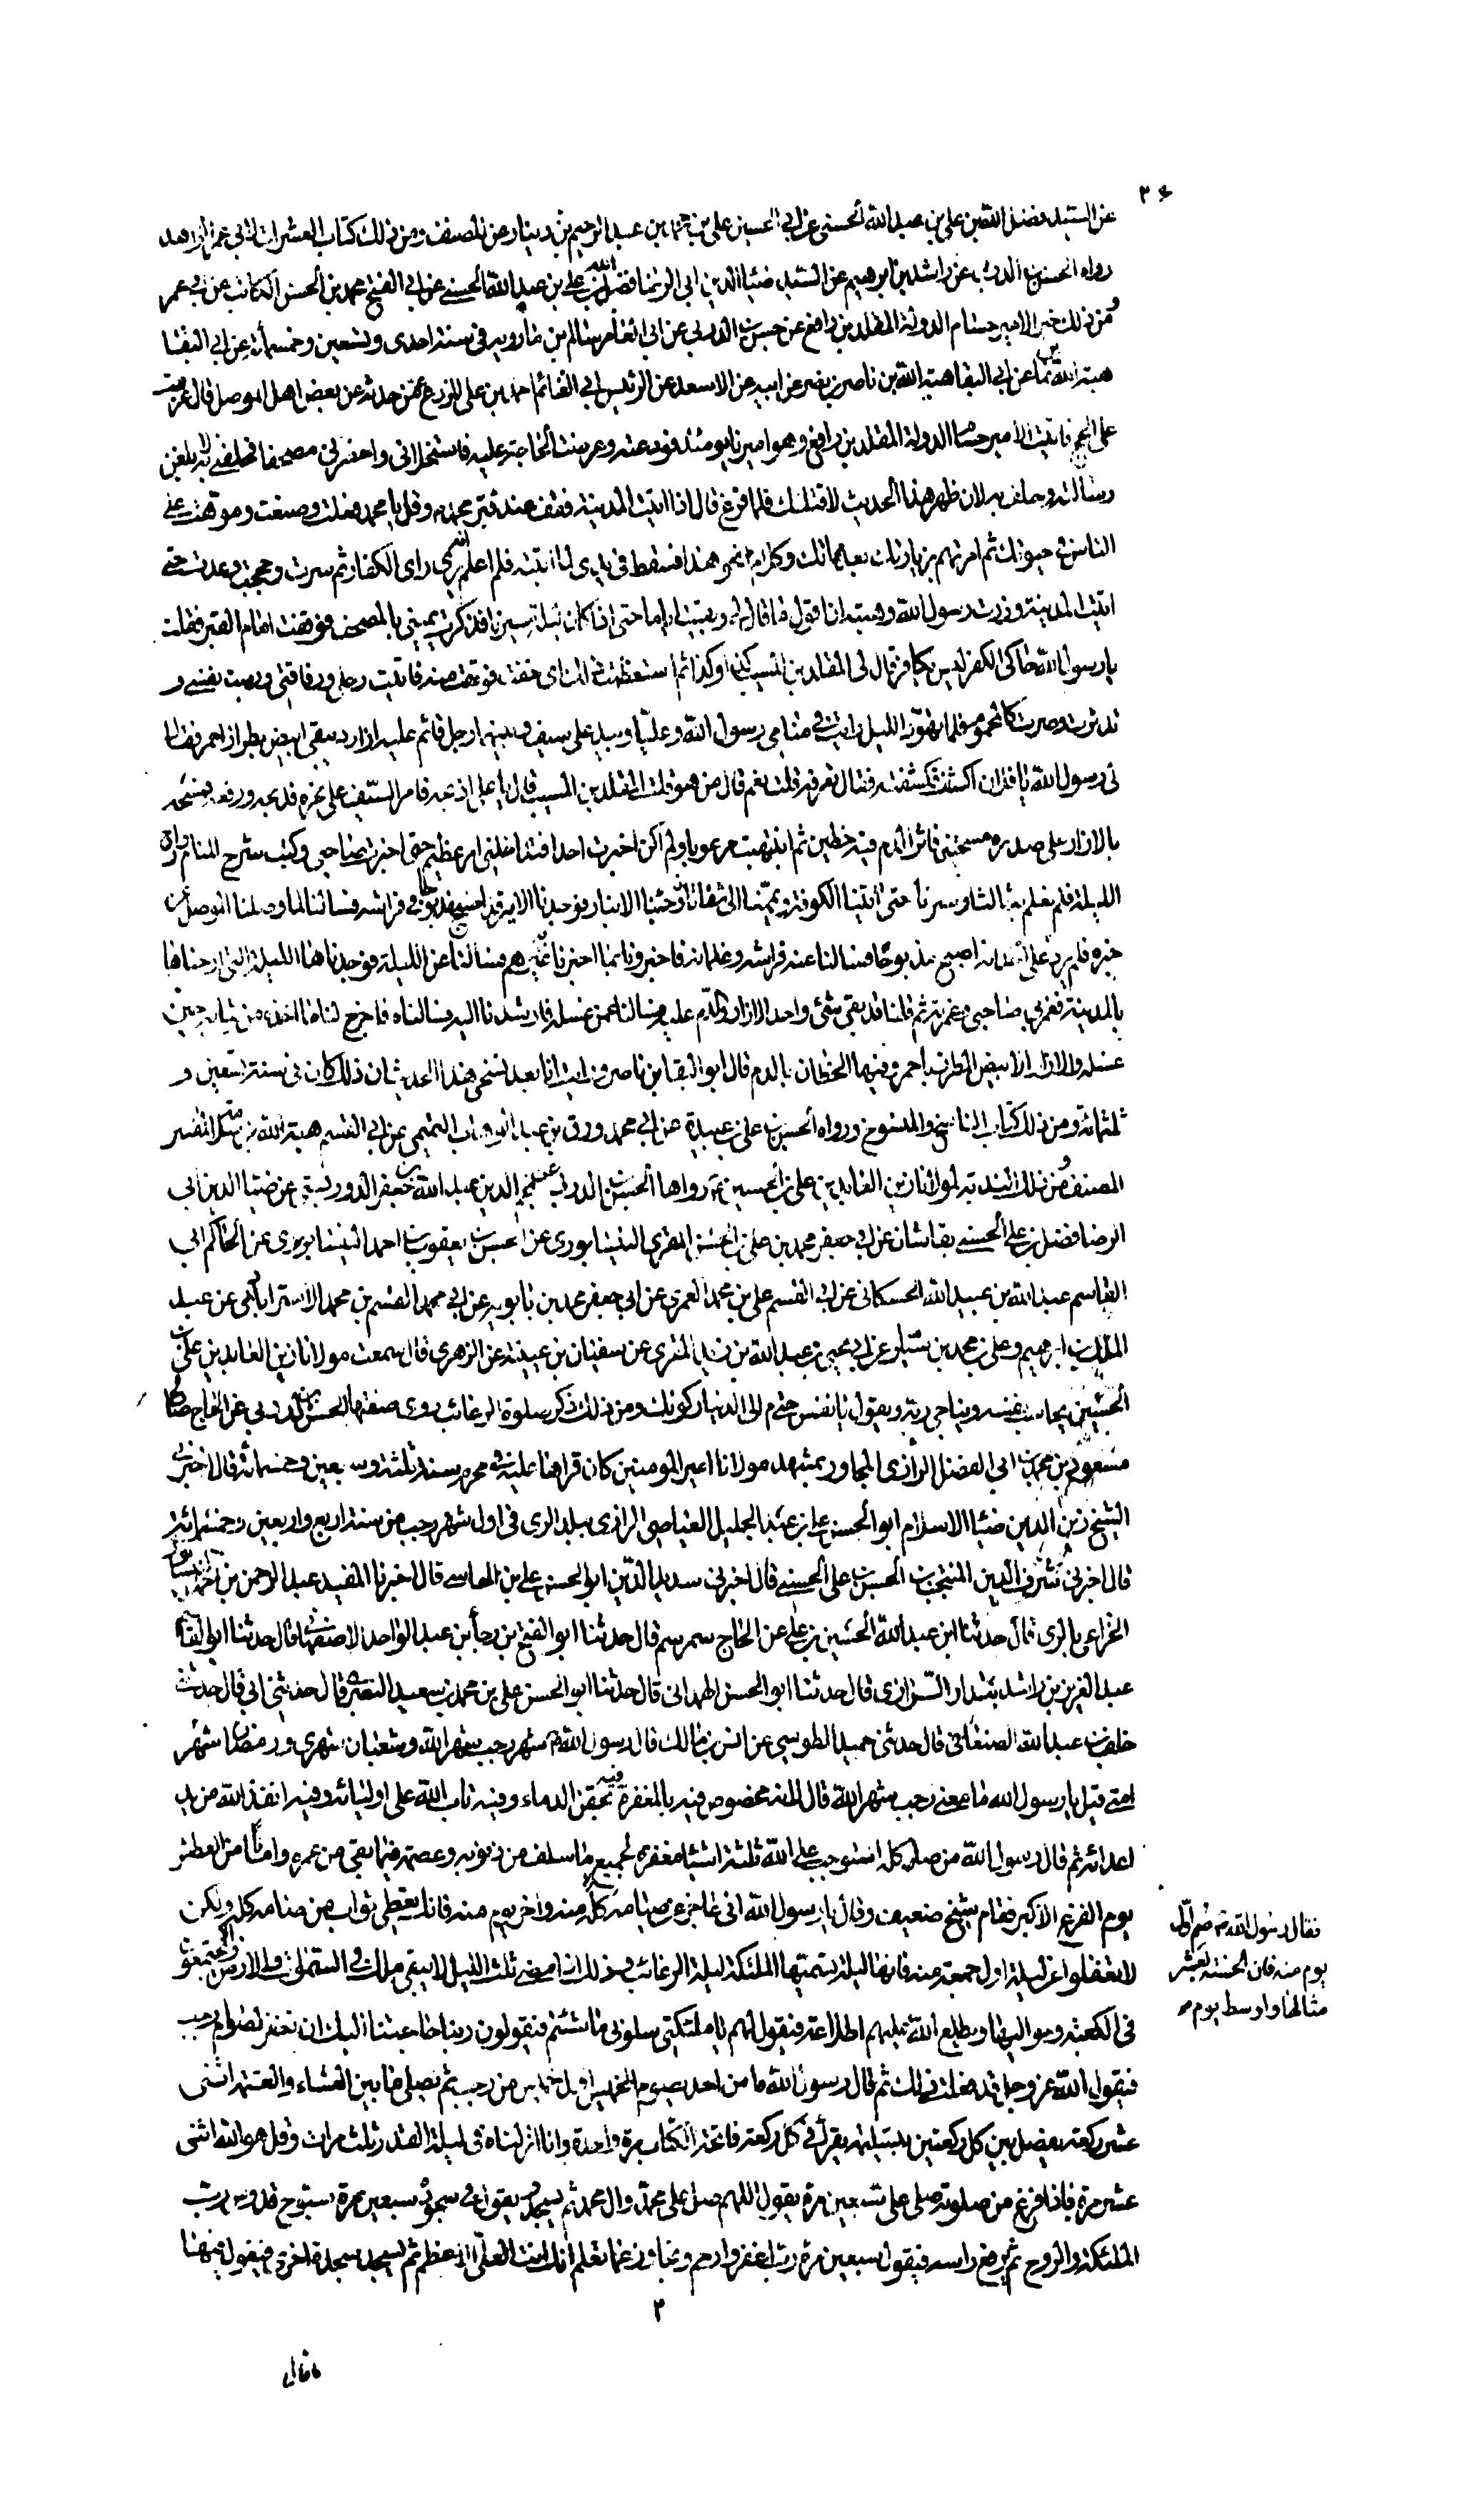 عن السيد فضل الله بن علي بن عبد الله الحسني عن ابي الحسين علي بن عبد الرحيم بن دينار عن المصنف ومن ذلك كتاب العشرات لابي عمر الزاهد
رواه الحسن بن الدربي عن راشد بن ابرهيم عن السيد ضياء الدين ابي الرضا فضل الله بن علي بن عبيد الله الحسني عن ابي الفتح محمد بن الحسن الكاتب عن ابي عمر
ومن ذلك خبر الامير حسام الدولة المقلد بن رافع عن حسن بن الدربي عن ابي الغنائم سالم بن مارويه في سنة احدى وتسعين وخمسمائة عن ابي البقا
هبة الله بن نما عن ابي البقا هبة الله بن ناصر بن نصر عن ابيه عن الاسعد عن الرئيس ابي الغنائم احمد بن علي المزرع عمن حدثه عن بعض اهل الموصل قال عزمت
على الحج فاتيت الامير حسام الدولة المقلد بن رافع وهو اميرنا يومئذ فودعته وعرضت الحاجة عليه فاستخلاني واحضر لي مصحفا فحلفني به لتبلغن
رسالته وحلف به لان ظهر هذا الحديث لاقتلنك فلما فرغ قال اذا اتيت المدينة فقف عند قبر محمد وقل يا محمد فعلت وصنعت وموهت على
الناس في حيوتك ثم امرتهم بزيارتك بعد مماتك وكلام نحو هذا فسقط في يدي لما اتيته فلم اعلم انه يرى راى الكفار ثم سرت وحججت وعدت حتى
اتيت المدينة وزرت رسول الله وهبته انا اقول ما قال لي وبقيت اياما حتى اذا كان ليلة مسيرنا فذكرت يميني بالمصحف فوقفت امام القبر فقلت
يا رسول الله حاكي الكفر ليس بكافر قال لي المقلد بن المسيب كذا وكذا ثم استعظمت ذلك
تدثرت وصرت كالمحموم فلما تهور الليل رايت في منامي رسول الله وعليا وبيد علي سيف وبينهما رجل قائم عليه ازار دبيقي ابيض بطراز احمر فقال
لي رسول الله يا فلان اكشف فكشفته فقال تعرفه قلت نعم قال من هو قلت المقلد بن المسيب قال يا علي اذبحه فامر السيف على نحره فذبحه ورفعه فمسحه
بالازار على صدره مسحتين فاثر الدم فيه خطين ثم انتبهت مرعوبا ولم اكن اخبرت احدا فتداخلني امر عظيم حتى اخبرت صاحبي وكتب شرح المنام
الليلة فلم نعلم به ثالثا وسرنا حتى اتينا الكوفة وجئنا الانبار فوجدنا الامير قد اصبح مذبوحا في فراشه فسالنا لما وصلنا الموصل عن
خبره فلم يزد علي انه اصبح مذبوحا فسالنا عنه فراشه وغلمانه فاخبرونا بما اخبرنا غيرهم فسالنا عن الليلة فوجدناها الليلة التي ارخناها
بالمدينة ثم قلنا قد بقي شئ واحد الازار والدم عليه فسالنا عمن غسله فارشدنا اليه فسالناه فاخرج لنا ما اخذه من ثيابه حين
غسله والازار الابيض المطرز باحمر وفيها الخطان بالدم قال ابو البقا بن ناصر ورايت انا بعد نسخي هذا الحديث ان ذلك كان في سنة تسعين و
ثلثمائة ومن ذلك كتاب الناسخ والمنسوخ ورواه الحسن بن علي بن عبيدة عن ابي محمد رزق بن عبد الوهاب التميمي عن ابي القسم هبة الله بن سلامة المفسر
المصنف ومن ذلك الندبة لمولانا زين العابدين علي بن الحسين رواها الحسن بن الدربي عن نجم الدين عبد الله بن جعفر الدوريستي عن ضياء الدين ابي
الرضا فضل الله بن علي الحسني بقاشان عن ابي جعفر محمد بن علي بن الحسن المقري النيسابوري عن الحسن بن يعقوب بن احمد النيسابوري عن الحاكم ابي
القاسم عبد الله بن عبيد الله الحسكاني عن ابي القسم علي بن محمد العمري عن ابي جعفر محمد بن بابويه عن ابي محمد القسم بن محمد الاستراباذي عن عبد
الملك بن ابرهيم وعلي بن محمد بن سيار عن ابي يحيى بن عبد الله بن زيد المقري عن سفيان بن عيينة عن الزهري قال سمعت مولانا زين العابدين علي بن
الحسين يحاسب نفسه ويناجي ربه ويقول يا نفس حتام الى الدنيا ركونك ومن ذلك ذكر صلوة الرغائب روى صفتها الحسن بن الدربي عن الحاج صالح
مسعود بن محمد بن ابي الفضل الرازي المجاور بمشهد مولانا امير المومنين كان قراها عليه في محرم سنة ثلثة وسبعين وخمسمائة قال اخبرني
الشيخ زين الدين ضياء الاسلام ابو الحسن علي بن عبد الجليل العياضي الرازي ببلد الري في اول شهر رجب من سنة اربع واربعين وخمسمائة
قال اخبرني شرف الدين المنتجب بن الحسن بن علي الحسني قال اخبرني سديد الدين ابو الحسن علي بن الحسن قال اخبرنا المفيد عبد الرحمن بن احمد النيسابوري
الخزاعي بالري قال حدثنا ابو عبد الله الحسين بن علي عن الحاج سمرسم قال حدثنا ابو الفتح بن رجا بن عبد الواحد الاصفهاني قال حدثنا ابو القاسم
عبد العزيز بن راشد بن بندار الشيرازي قال حدثنا ابو الحسن الهمداني قال حدثنا ابو الحسن علي بن محمد بن سعيد البصري قال حدثني ابي قال حدثنا
خلف بن عبد الله الصنعاني قال حدثني حميد الطوسي عن انس بن مالك قال رسول الله شهر رجب شهر الله وشعبان شهري ورمضان شهر
امتي قيل يا رسول الله ما معنى رجب شهر الله قال لانه مخصوص فيه بالمغفرة فيه تحقن الدماء وفيه تاب الله على اوليائه وفيه انقذ الله من يد
اعدائه ثم قال رسول الله من صام كله استوجب على الله ثلثة اشياء مغفرة لجميع ما سلف من ذنوبه وعصمة فيما بقي من عمره وامانا من العطش
يوم الفزع الاكبر فقام شيخ ضعيف وقال يا رسول الله اني عاجز عن صيامه كله منه واخر يوم منه فانك تعطى ثواب من صامه كله ولكن
لا تغفلوا عن ليلة اول جمعة منه فانها ليلة تسميها الملئكة ليلة الرغائب وذلك اذا مضى ثلث الليل لا يبقى ملك في السموات والارض الا يجتمعون
في الكعبة وحواليها ويطلع الله عليهم اطلاعة فيقول لهم يا ملئكتي سلوني ما شئتم فيقولون ربنا حاجتنا اليك ان تغفر لصوام رجب
فيقول الله عز وجل قد فعلت ذلك ثم قال رسول الله ما من احد يصوم الخميس اول خميس من رجب ثم يصلي ما بين العشاء والعتمة اثني
عشر ركعة يفصل بين كل ركعتين بتسليمة يقرأ في كل ركعة فاتحة الكتاب مرة واحدة وانا انزلناه في ليلة القدر ثلث مرات وقل هو الله اثني
عشر مرة فاذا فرغ من صلوته صلى علي سبعين مرة يقول اللهم صل على محمد وال محمد ثم يسجد ويقول في سجوده سبعين مرة سبوح قدوس رب
الملئكة والروح ثم يرفع راسه فيقول سبعين مرة رب اغفر وارحم وتجاوز عما تعلم انك انت العلي الاعظم ثم يسجد سجدة اخرى فيقول فيها
فقال رسول الله صم اول
يوم منه فان الحسنة بعشر
امثالها واوسط يوم منه
ما قال